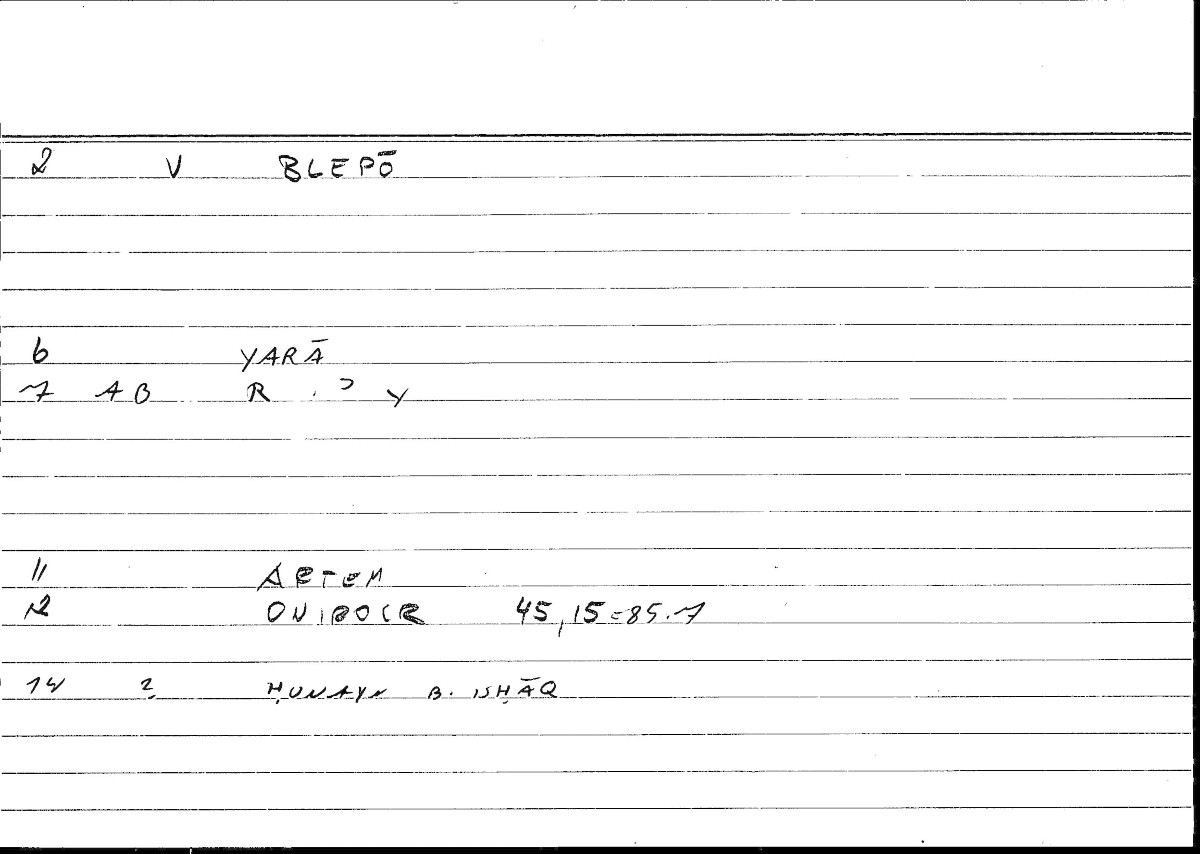 2 V BLEPŌ
6 YARĀ
7 AB R . ʾ Y
11 ARTEM
12 ONIROCR 45,15=85.7
14 2 ḤUNAYN B. ISḤĀQ